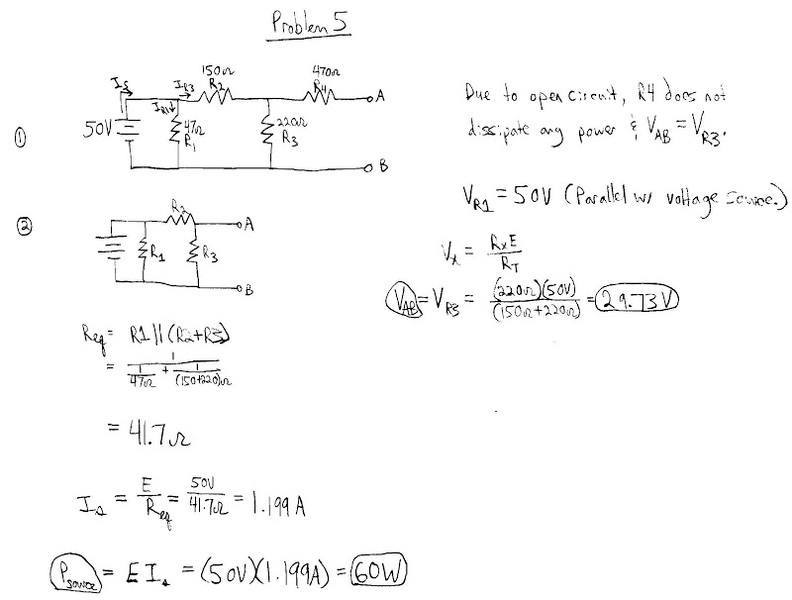 Problem 5
①
I_s
50V
I_R1↓
47Ω
R1
I_R3
150Ω
R2
220Ω
R3
470Ω
R4
A
B
Due to open circuit, R4 does not
dissipate any power & V_AB = V_R3.
V_R1 = 50V (Parallel w/ voltage source.)
V_x = R_xE / R_T
V_AB = V_R3 = (220Ω)(50V) / (150Ω+220Ω) = 29.73V
②
R2
R1
R3
A
B
Req = R1 || (R2+R3)
= 1 / (1/47Ω + 1/(150+220)Ω)
= 41.7Ω
I_s = E/Req = 50V/41.7Ω = 1.199A
P_source = E I_s = (50V)(1.199A) = 60W